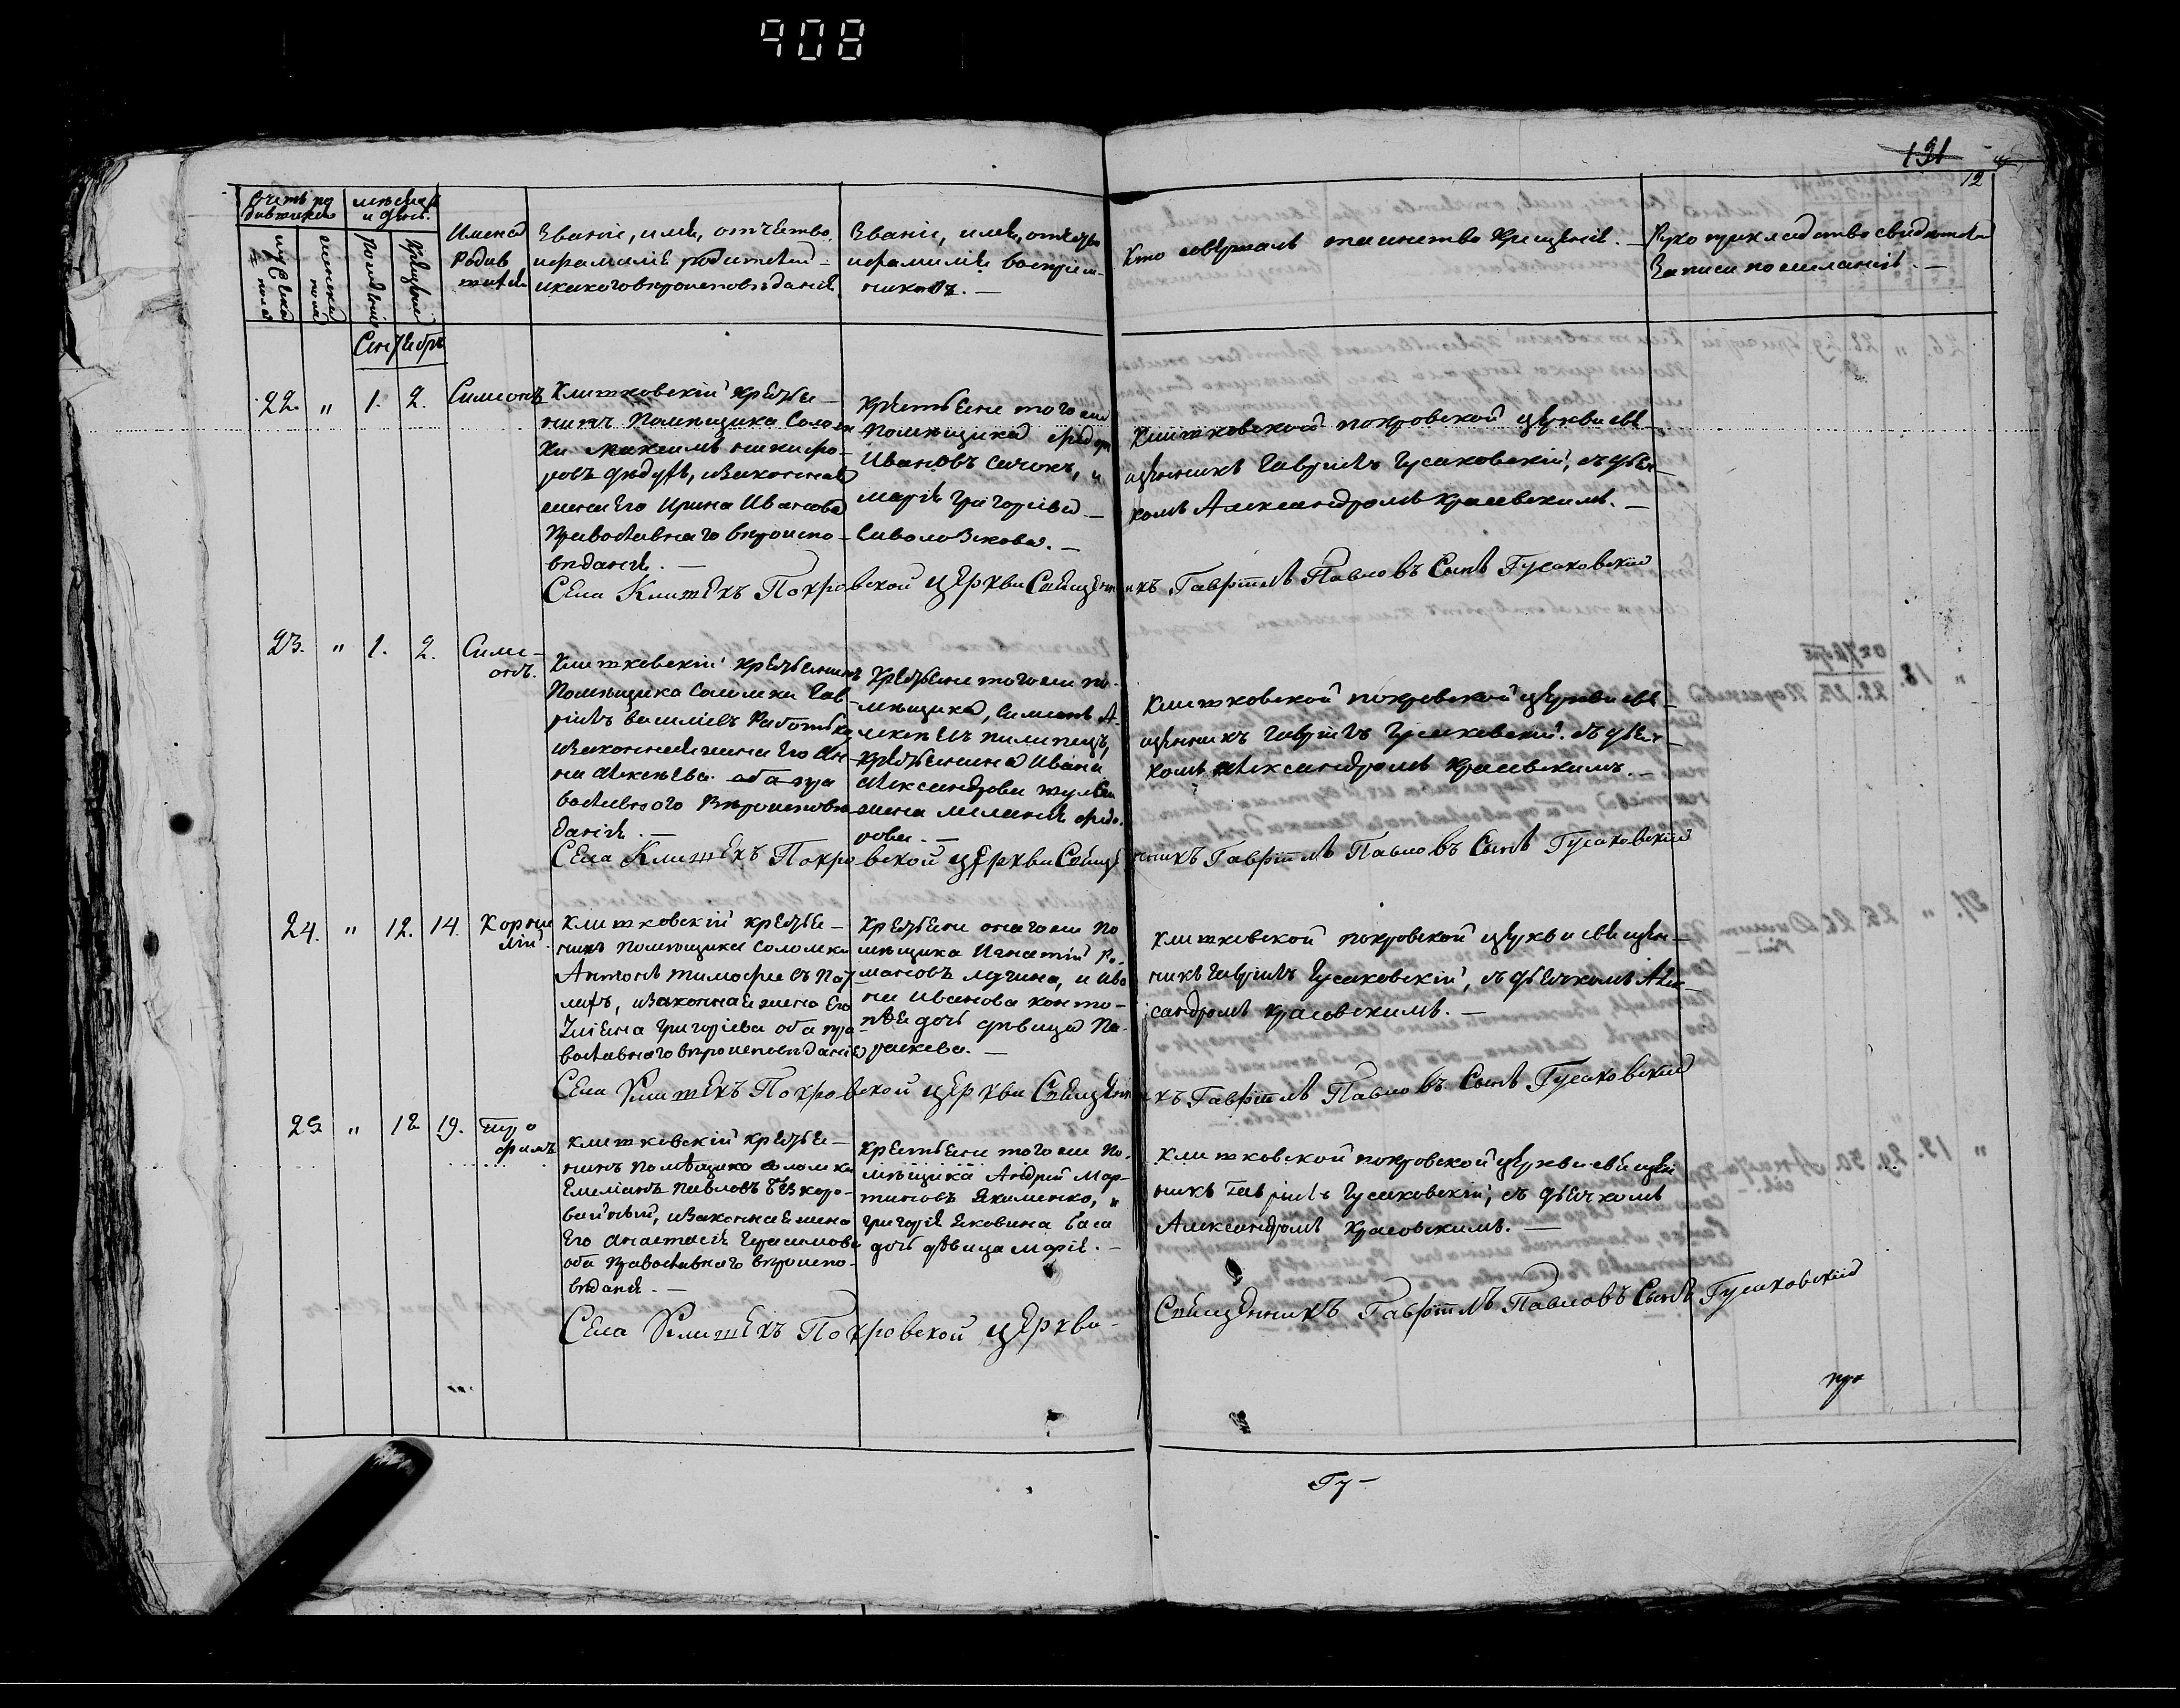 908
191
12
Счетъ ро
дившихся
мѣсяцъ
и день.
мужеска
пола
женска
пола
Рожденія
Крещенія
Имена
Родив
шихся
Званіе, имя, отчество,
и фамилія родителей
и какого вѣроисповѣданія
Званіе, имя, отчество
и фамилія воспріем-
никовъ. —
Кто совершалъ таинство Крещенія. —
Рукоприкладство свидѣтелей
записи по желанію. —
Сентябрь
22. " 1. 2. Симеонъ
Клитковскій Крестья-
нинъ Помѣщика Солом
ки Максимъ Никифо-
ровъ Дѣдухъ, и законная
жена Его Ирина Иванова
Православнаго вѣроиспо-
вѣданія. —
Крестьяне того же
Помѣщика Федоръ
Ивановъ Сичокъ, и
Марія Григоріева —
Сиволозкова. —
Клитковской Покровской церкви свя-
щенникъ Гавріилъ Гусаковскій, съ дьяч-
комъ Александромъ Красовскимъ. —
Села Клитекъ Покровской церкви Священникъ Гавріилъ Павловъ Сынъ Гусаковскій
23. " 1. 2. Симе-
онъ.
Клитковскій крестьянинъ
Помѣщика Соломки Гав-
ріилъ Василіевъ Работяга
и законная жена Его Ан-
на Алексѣева оба пра
вославного Вѣроисповѣ
данія. —
Крестьяне того же по-
мѣщика, Симеонъ А-
лексѣевъ Пилипецъ,
крестьянина Ивана
Александрова
жена Меланія Федо-
рова. —
Клитковской покровской церкви свя-
щенникъ Гавріилъ Гусаковскій. съ дьяч-
комъ Александромъ Красовскимъ. —
Села Клитекъ Покровской церкви Священникъ Гавріилъ Павловъ Сынъ Гусаковскій
24. " 12. 14. Корни
лій.
Клитковскій крестья-
нинъ помѣщика Соломки
Антонъ Тимофеевъ
и законная жена Его
Уліяна Григоріева оба пра
вославнаго вѣроисповѣданія
Крестьяне онаго же По
мѣщика Игнатій Ро-
мановъ Лучина, и Ива
на Иванова
дочь дѣвица Па-
раскева. —
Клитковской покровской церкви священ-
никъ Гавріилъ Гусаковскій, съ дьячкомъ Алек-
сандромъ Красовскимъ. —
Села Клитекъ Покровской церкви Священникъ Гавріилъ Павловъ Сынъ Гусаковскій
25. " 12 19. Тро
фимъ
Клитковскій крестья-
нинъ помѣщика Соломки
Емеліянъ Павловъ Безкоро-
вайный, и законная жена
Его Анастасія Герасимова
оба Православнаго вѣроиспо-
вѣданія. —
Крестьяне того же По-
мѣщика Андрей Мар-
тиновъ Якименко, и
Григорія Яковина Баса
дочь дѣвица Марія. —
Клитковской покровской церкви священ
никъ Гавріилъ Гусаковскій, съ дьячкомъ
Александромъ Красовскимъ. —
Села Клитекъ Покровской церкви Священникъ Гавріилъ Павловъ Сынъ Гусаковскій
Гу-